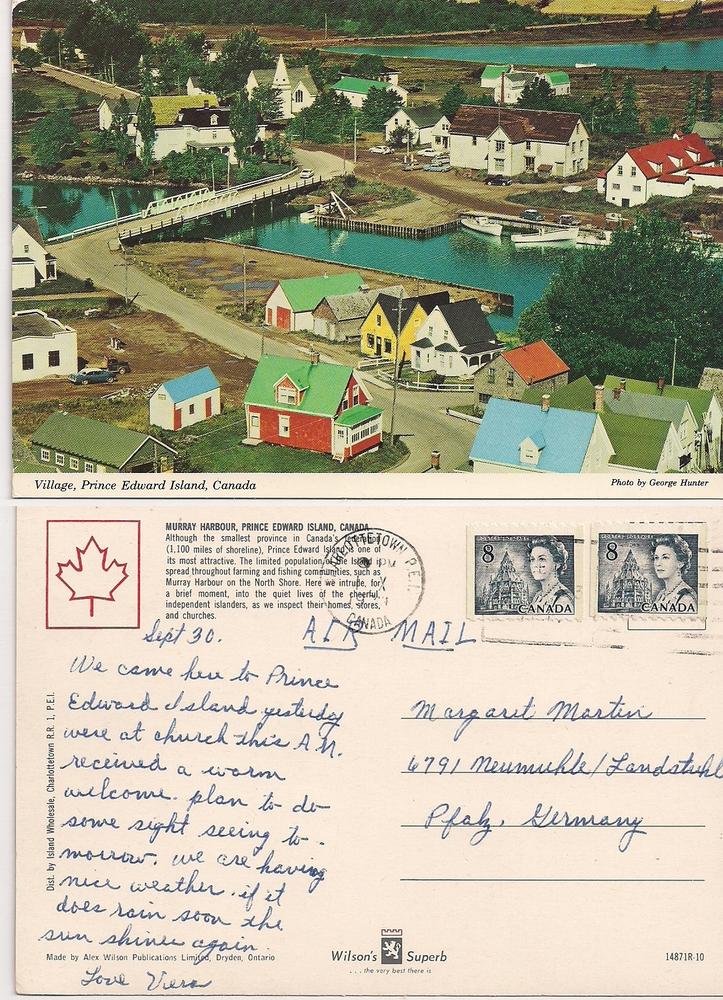 Village, Prince Edward Island, Canada
Photo by George Hunter
MURRAY HARBOUR, PRINCE EDWARD ISLAND, CANADA
Although the smallest province in Canada's federation
(1,100 miles of shoreline), Prince Edward Island is one of
its most attractive. The limited population of the Island is
spread throughout farming and fishing communities, such as
Murray Harbour on the North Shore. Here we intrude, for
a brief moment, into the quiet lives of the cheerful,
independent islanders, as we inspect their homes, stores,
and churches.
CHARLOTTETOWN P.E.I.
PM
CANADA
8
CANADA
8
CANADA
Sept 30.
AIR MAIL
We came here to Prince
Edward Island yesterday
were at church this A.M.
received a warm
welcome. plan to do
some sight seeing to-
morrow. we are having
nice weather. if it
does rain soon the
sun shines again.
Love Vera
Margaret Martin
6791 Neumuhle/Landstuhl
Pfalz, Germany
Dist. by Island Wholesale, Charlottetown R.R. 1, P.E.I.
Made by Alex Wilson Publications Limited, Dryden, Ontario
Wilson's Superb
... the very best there is
14871R-10